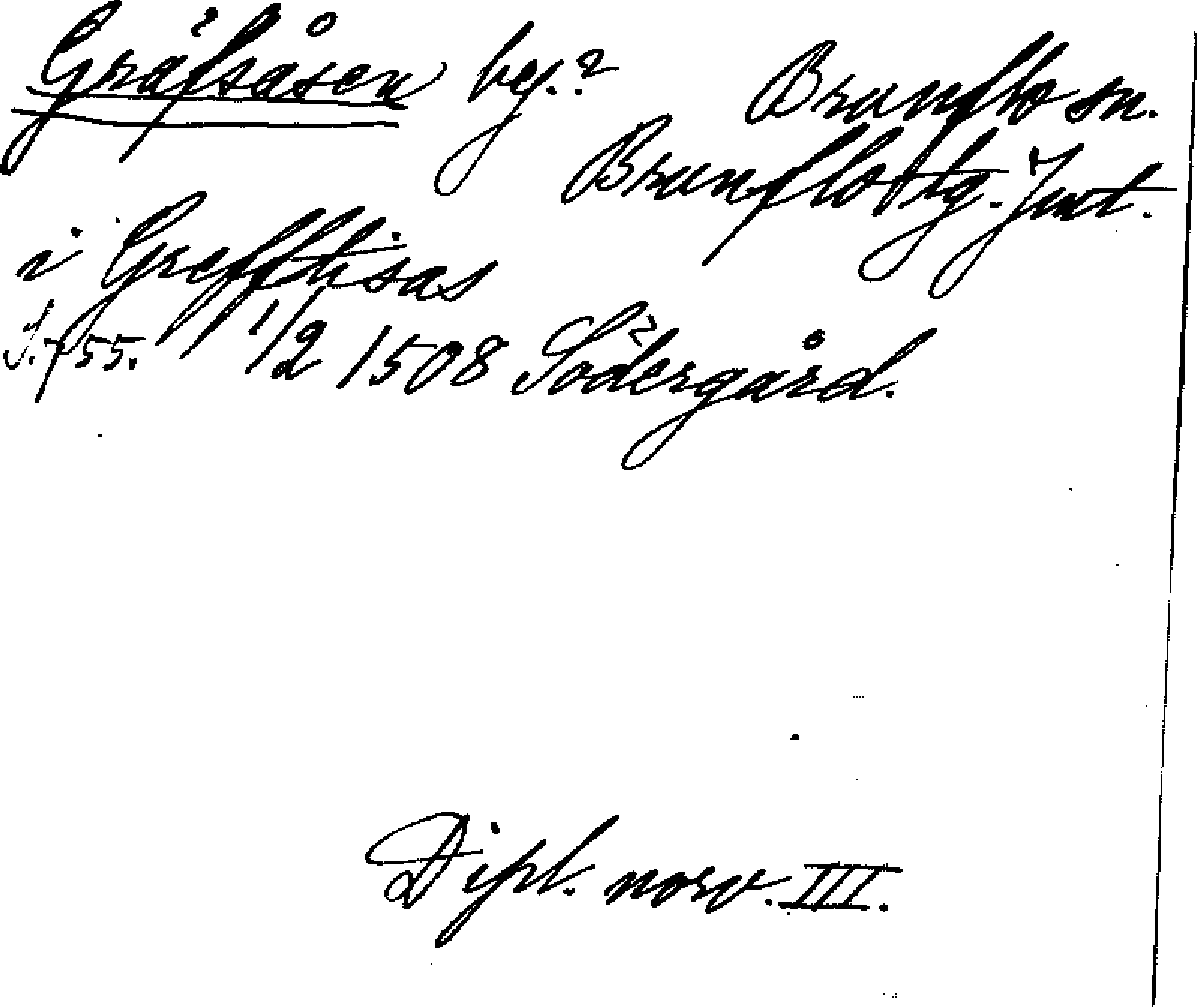 Gräfsåsen by.? Brunflo sn.
Brunflo tg. Jmt.
i Grefftisas
S. 755. 1/2 1508 Södergård.
Dipl. norv. III.